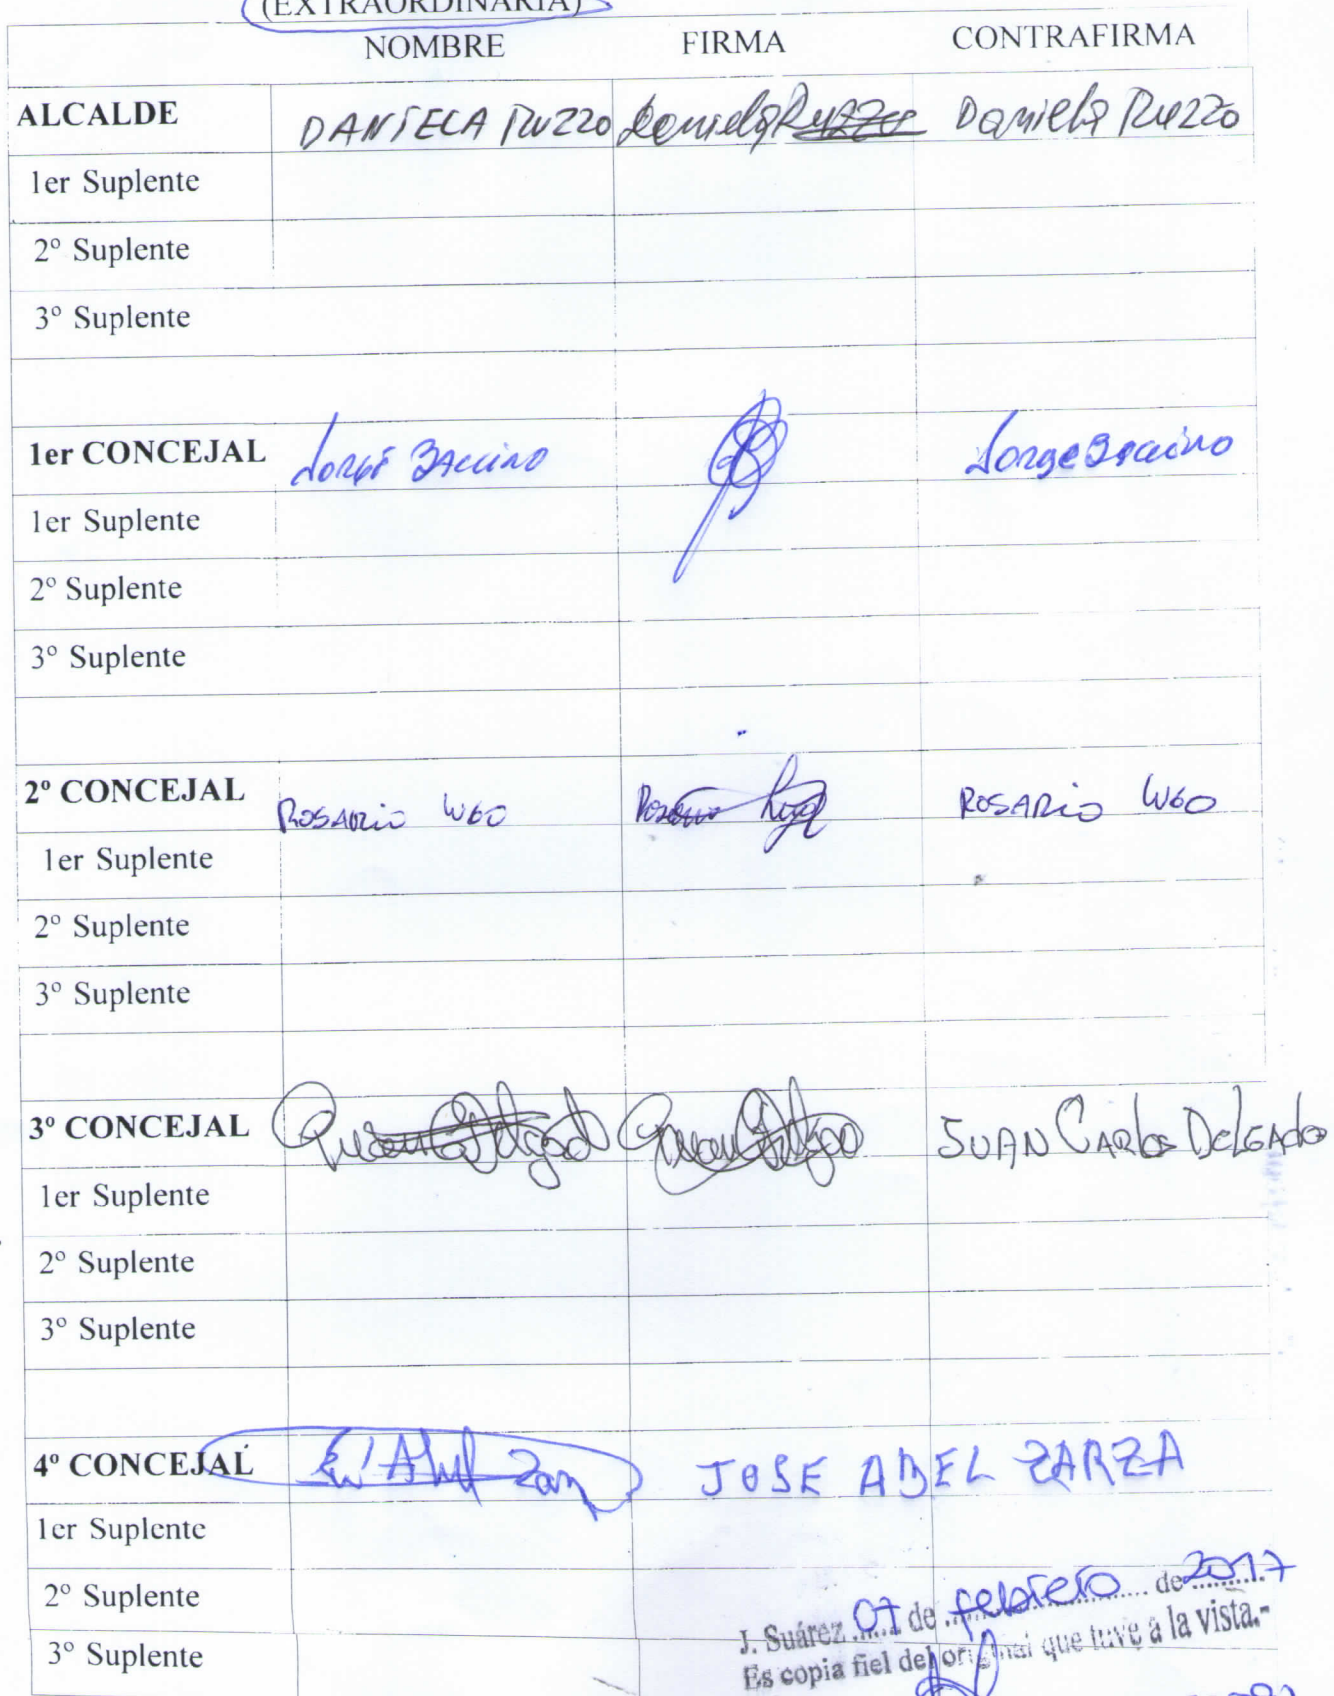 (EXTRAORDINARIA)
NOMBRE FIRMA CONTRAFIRMA
ALCALDE DANIELA RUZZO Daniela Ruzzo Daniela Ruzzo
1er Suplente
2º Suplente
3º Suplente
1er CONCEJAL JORGE BACCINO Jorge Baccino
1er Suplente
2º Suplente
3º Suplente
2º CONCEJAL ROSARIO LUGO Rosario Lugo ROSARIO LUGO
1er Suplente
2º Suplente
3º Suplente
3º CONCEJAL JUAN CARLOS DELGADO
1er Suplente
2º Suplente
3º Suplente
4º CONCEJAL JOSE ABEL ZARZA
1er Suplente
2º Suplente
3º Suplente
J. Suárez 07 de febrero de 2017
Es copia fiel del original que tuve a la vista.-